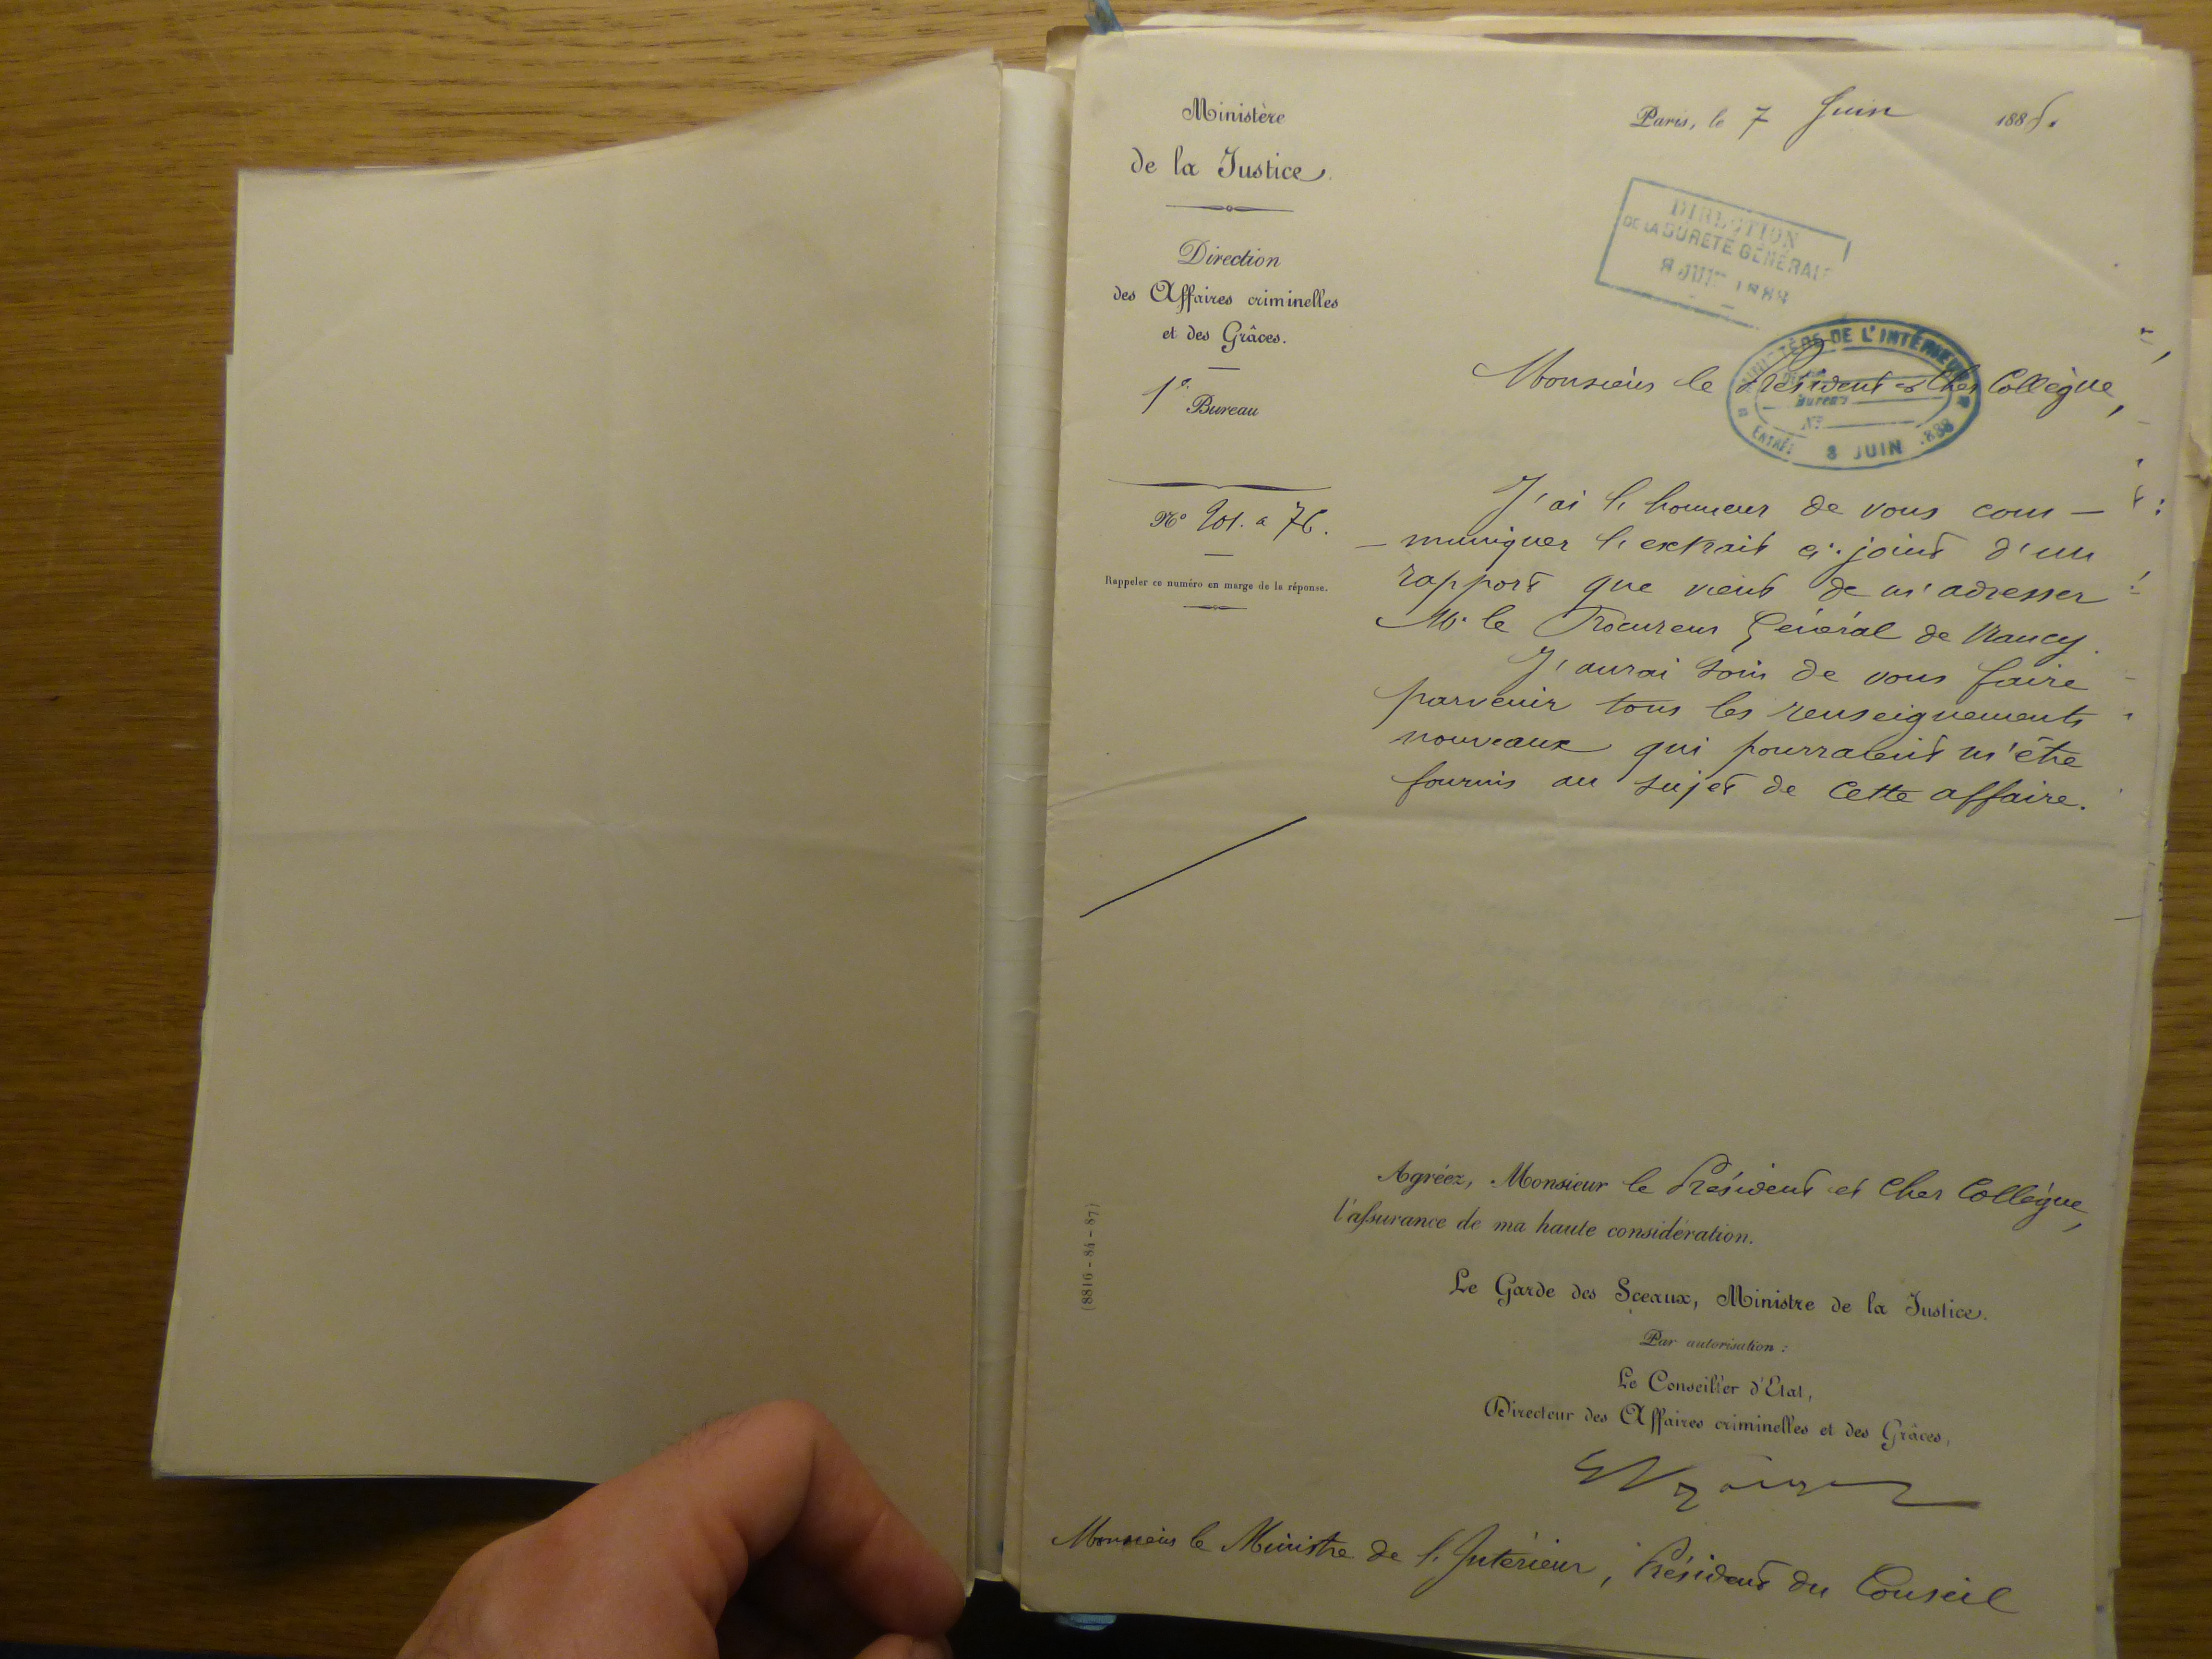 Ministère
de la Justice.
Direction
des Affaires criminelles
et des Grâces.
1e Bureau
No 201. a 76.
Rappeler ce numéro en marge de la réponse.
Paris, le 7 Juin 188
DIRECTION
DE LA SURETÉ GÉNÉRALE
8 JUIN 1888
MINISTÈRE DE L'INTÉRIEUR
Bureau
No
ENTRÉE 8 JUIN 1888
Monsieur le Président et Cher Collègue,
J'ai l'honneur de vous com-
-muniquer l'extrait ci-joint d'un
rapport que vient de m'adresser
Mr. le Procureur Général de Nancy.
J'aurai soin de vous faire
parvenir tous les renseignements
nouveaux qui pourraient m'être
fournis au sujet de cette affaire.
Agréez, Monsieur le Président et Cher Collègue,
l'assurance de ma haute considération.
Le Garde des Sceaux, Ministre de la Justice.
Par autorisation :
Le Conseiller d'Etat,
Directeur des Affaires criminelles et des Grâces,
Monsieur le Ministre de l'Intérieur, Président du Conseil
(8816-84-87)